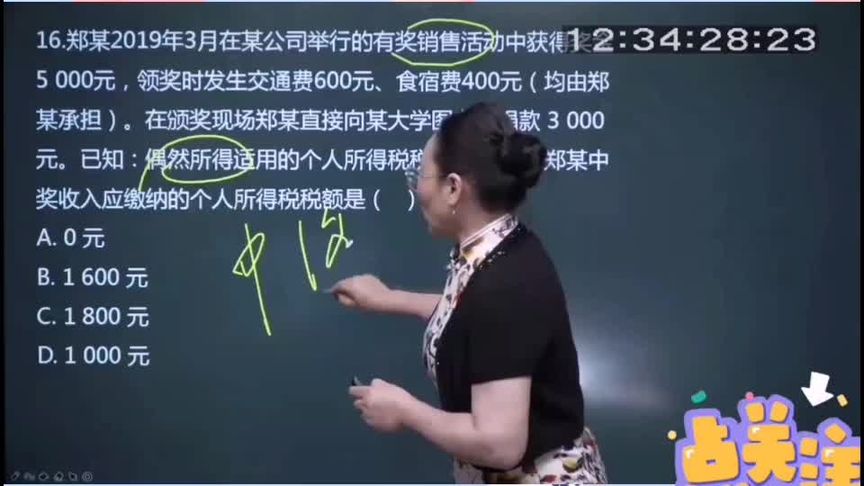 16.郑某2019年3月在某公司举行的有奖销售活动中获得
12:34:28:23
5 000元，领奖时发生交通费600元、食宿费400元（均由郑
某承担）。在颁奖现场郑某直接向某大学图 捐款 3 000
元。已知：偶然所得适用的个人所得税税 郑某中
奖收入应缴纳的个人所得税税额是（ ）
A. 0 元
B. 1 600 元
C. 1 800 元
D. 1 000 元
点关注